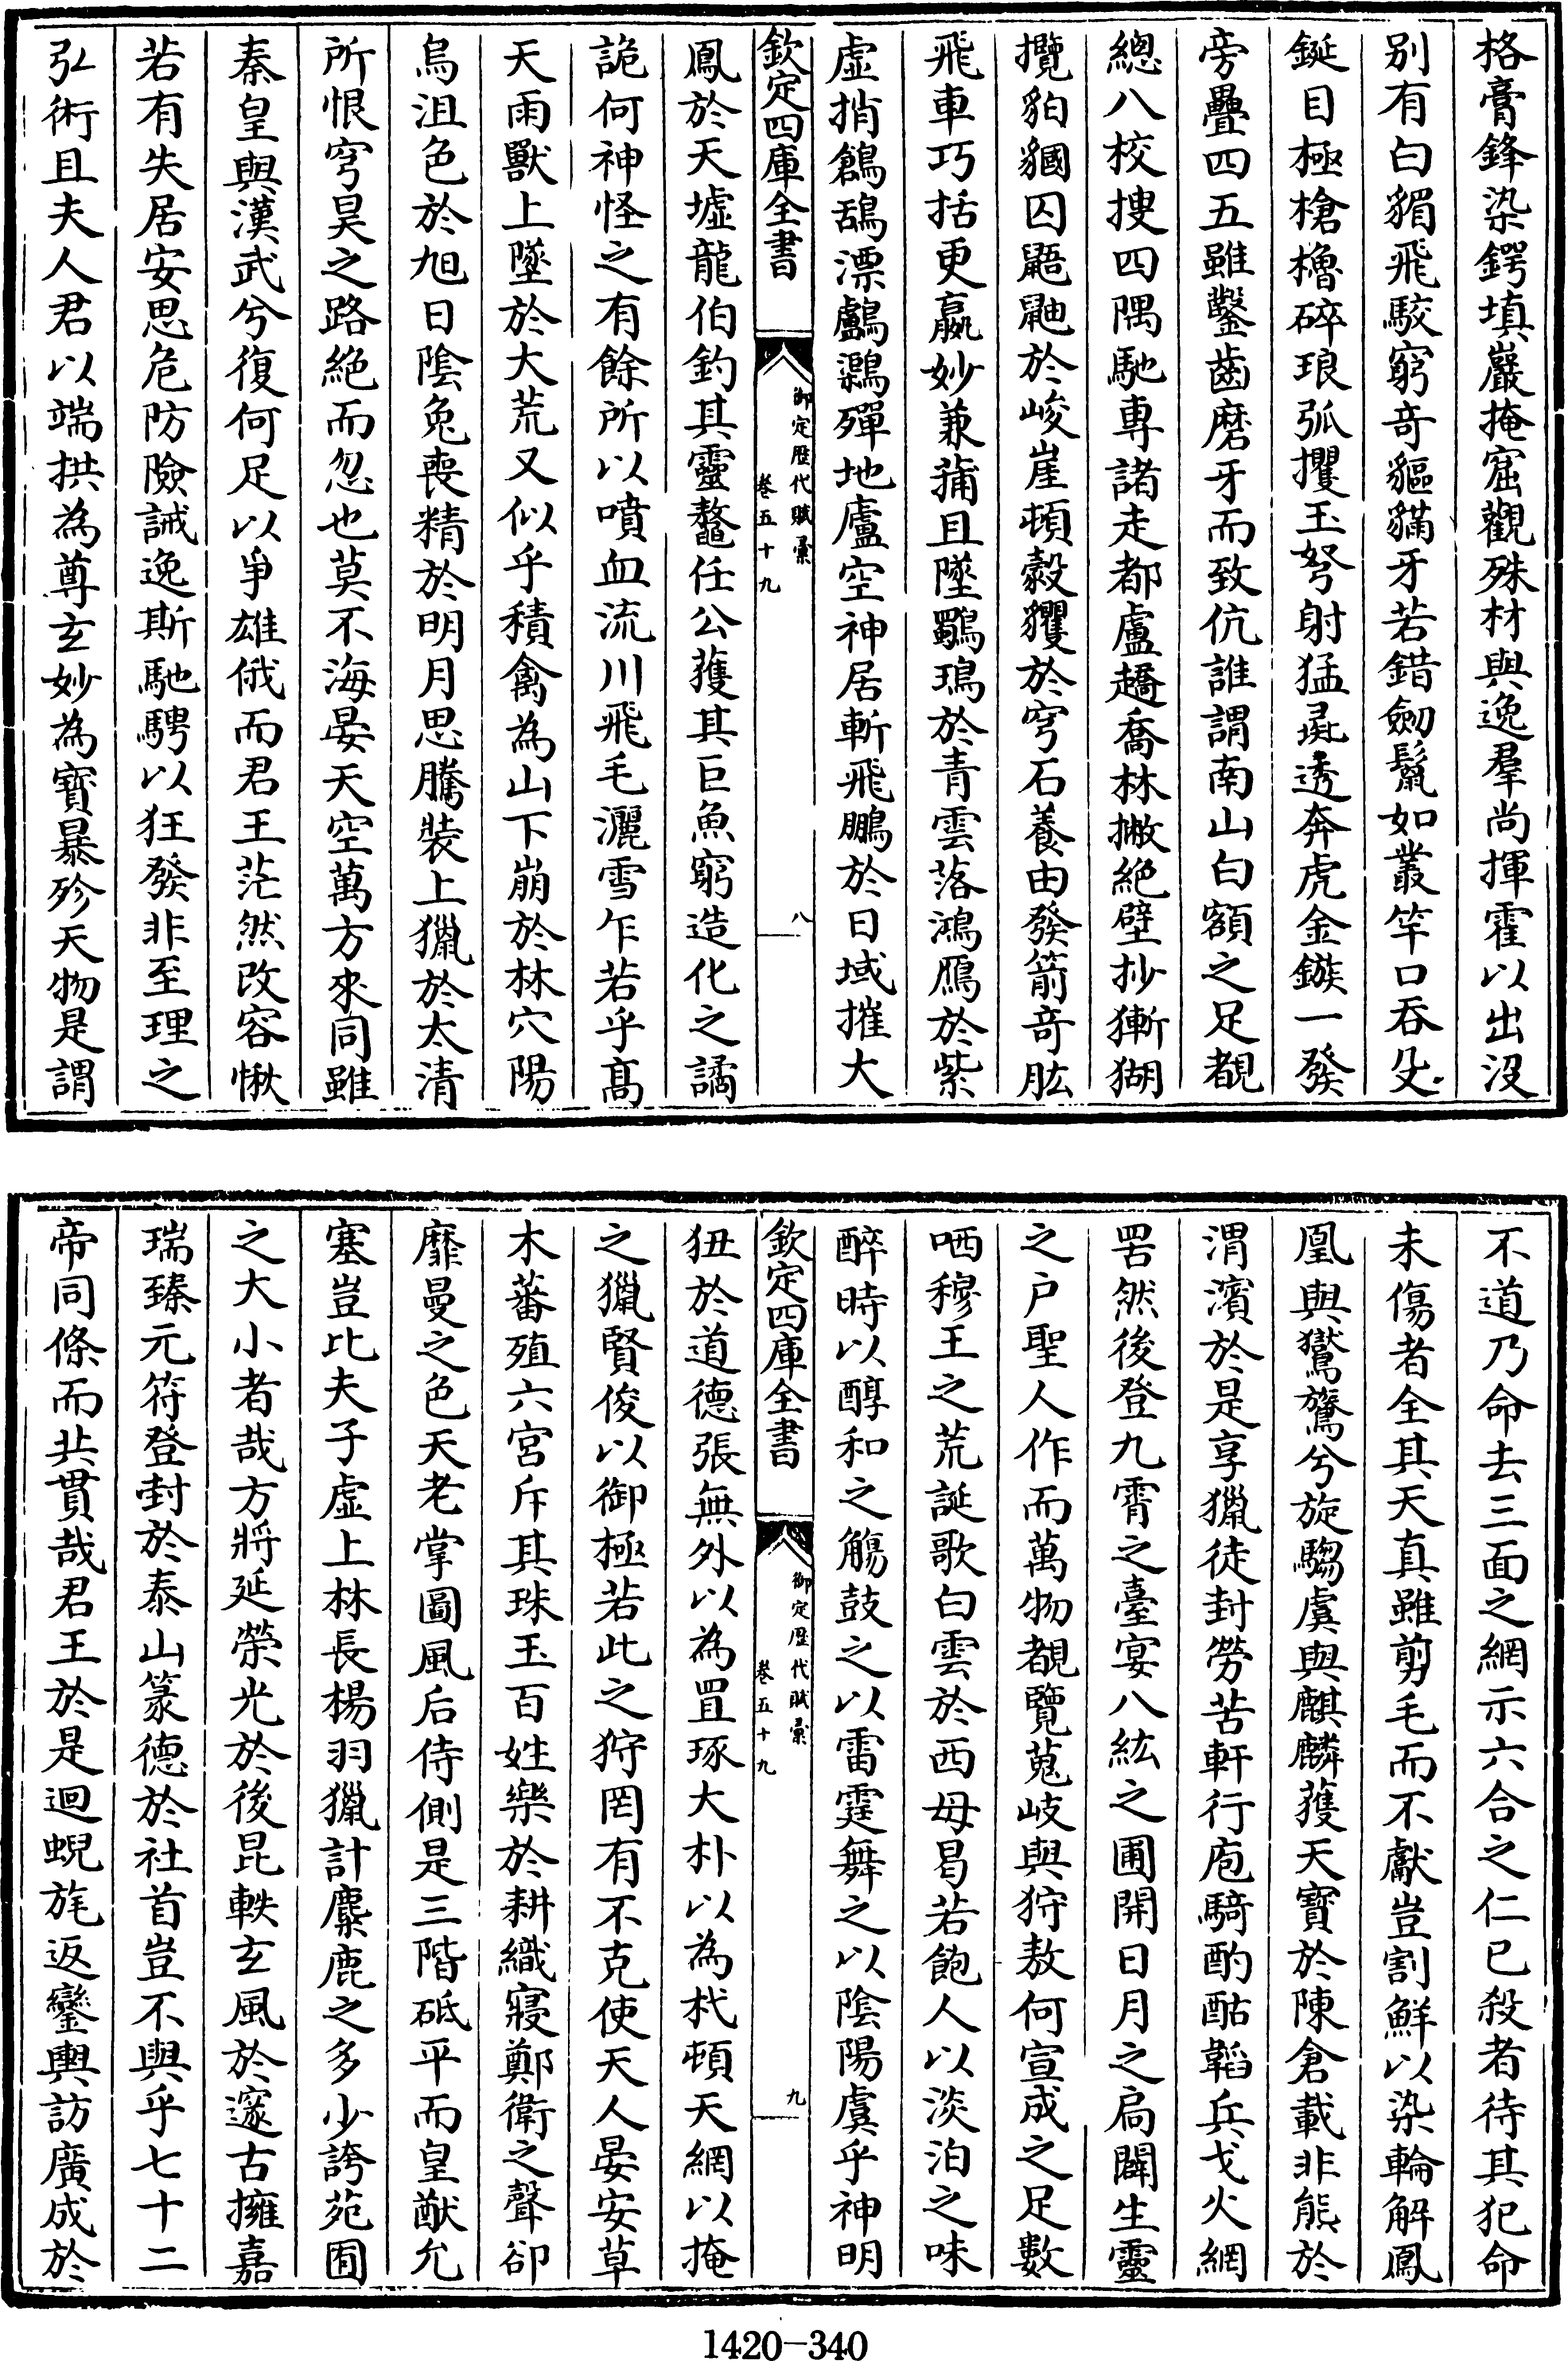 格膏鋒染鍔填巖掩窟觀殊材與逸羣尚揮霍以出没
别有白猸飛駮窮竒貙獌牙若錯劒鬛如叢竿口吞殳
鋋目極槍櫓碎琅弧攫玉弩射猛彘透奔虎金鏃一發
旁疊四五雖鑿齒磨牙而致伉誰謂南山白額之足覩
總八校搜四隅馳專諸走都盧趫喬林撇絶壁抄獑猢
攬貊䝙囚鼯鼬於峻崖頓㺉玃於穹石養由發箭竒肱
飛車巧括更嬴妙兼蒲且墜鸀鳿於青雲落鴻鴈於紫
虛捎鶬鴰漂鸕鶿殫地廬空神居斬飛鵬於日域摧大
欽定四庫全書
御定歷代賦彙
卷五十九
八
鳳於天墟龍伯釣其靈鼇任公獲其巨魚窮造化之譎
詭何神怪之有餘所以噴血流川飛毛灑雪乍若乎髙
天雨獸上墜於大荒又似乎積禽為山下崩於林穴陽
烏沮色於旭日陰兔喪精於明月思騰裝上獵於太清
所恨穹昊之路絶而忽也莫不海晏天空萬方來同雖
秦皇與漢武兮復何足以爭雄俄而君王茫然改容愀
若有失居安思危防險誡逸斯馳騁以狂發非至理之
弘術且夫人君以端拱為尊玄妙為寶暴殄天物是謂
不道乃命去三面之網示六合之仁已殺者待其犯命
未傷者全其天真雖剪毛而不獻豈割鮮以染輪解鳳
凰與鸑鷟兮旋騶虞與麒麟獲天寶於陳倉載非熊於
渭濱於是享獵徒封勞苦軒行庖騎酌酤韜兵戈火網
罟然後登九霄之臺宴八紘之圃開日月之扃闢生靈
之户聖人作而萬物覩覽蒐岐與狩敖何宣成之足數
哂穆王之荒誕歌白雲於西母曷若飽人以淡泊之味
醉時以醇和之觴鼓之以雷霆舞之以陰陽虞乎神明
欽定四庫全書
御定歷代賦彙
卷五十九
九
狃於道德張無外以為罝琢大朴以為杙頓天網以掩
之獵賢俊以御極若此之狩罔有不克使天人晏安草
木蕃殖六宮斥其珠玉百姓樂於耕織寢鄭衛之聲卻
靡曼之色天老掌圖風后侍側是三階砥平而皇猷允
塞豈比夫子虛上林長楊羽獵計麋鹿之多少誇苑囿
之大小者哉方將延榮光於後昆軼玄風於邃古擁嘉
瑞臻元符登封於泰山篆德於社首豈不與乎七十二
帝同條而共貫哉君王於是迴蜺旄返鑾輿訪廣成於
1420-340